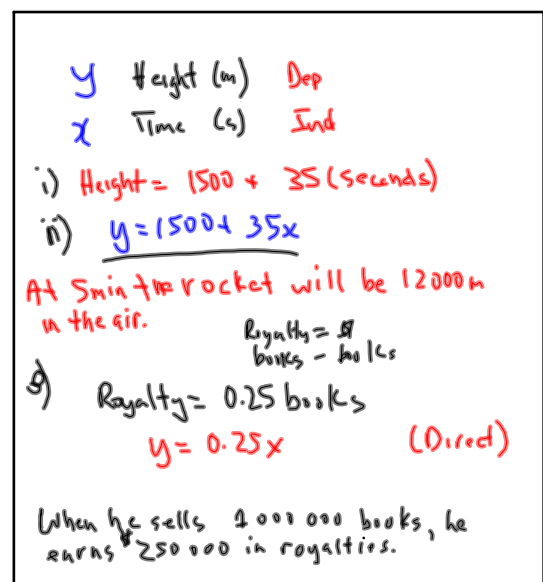 y Height (m) Dep
x Time (s) Ind
i) Height = 1500 + 35 (seconds)
ii) y = 1500 + 35x
At 5min the rocket will be 12000m
in the air.
Royalty = $
books - books
g) Royalty = 0.25 books
y = 0.25x (Direct)
When he sells 1 000 000 books, he
earns $250 000 in royalties.